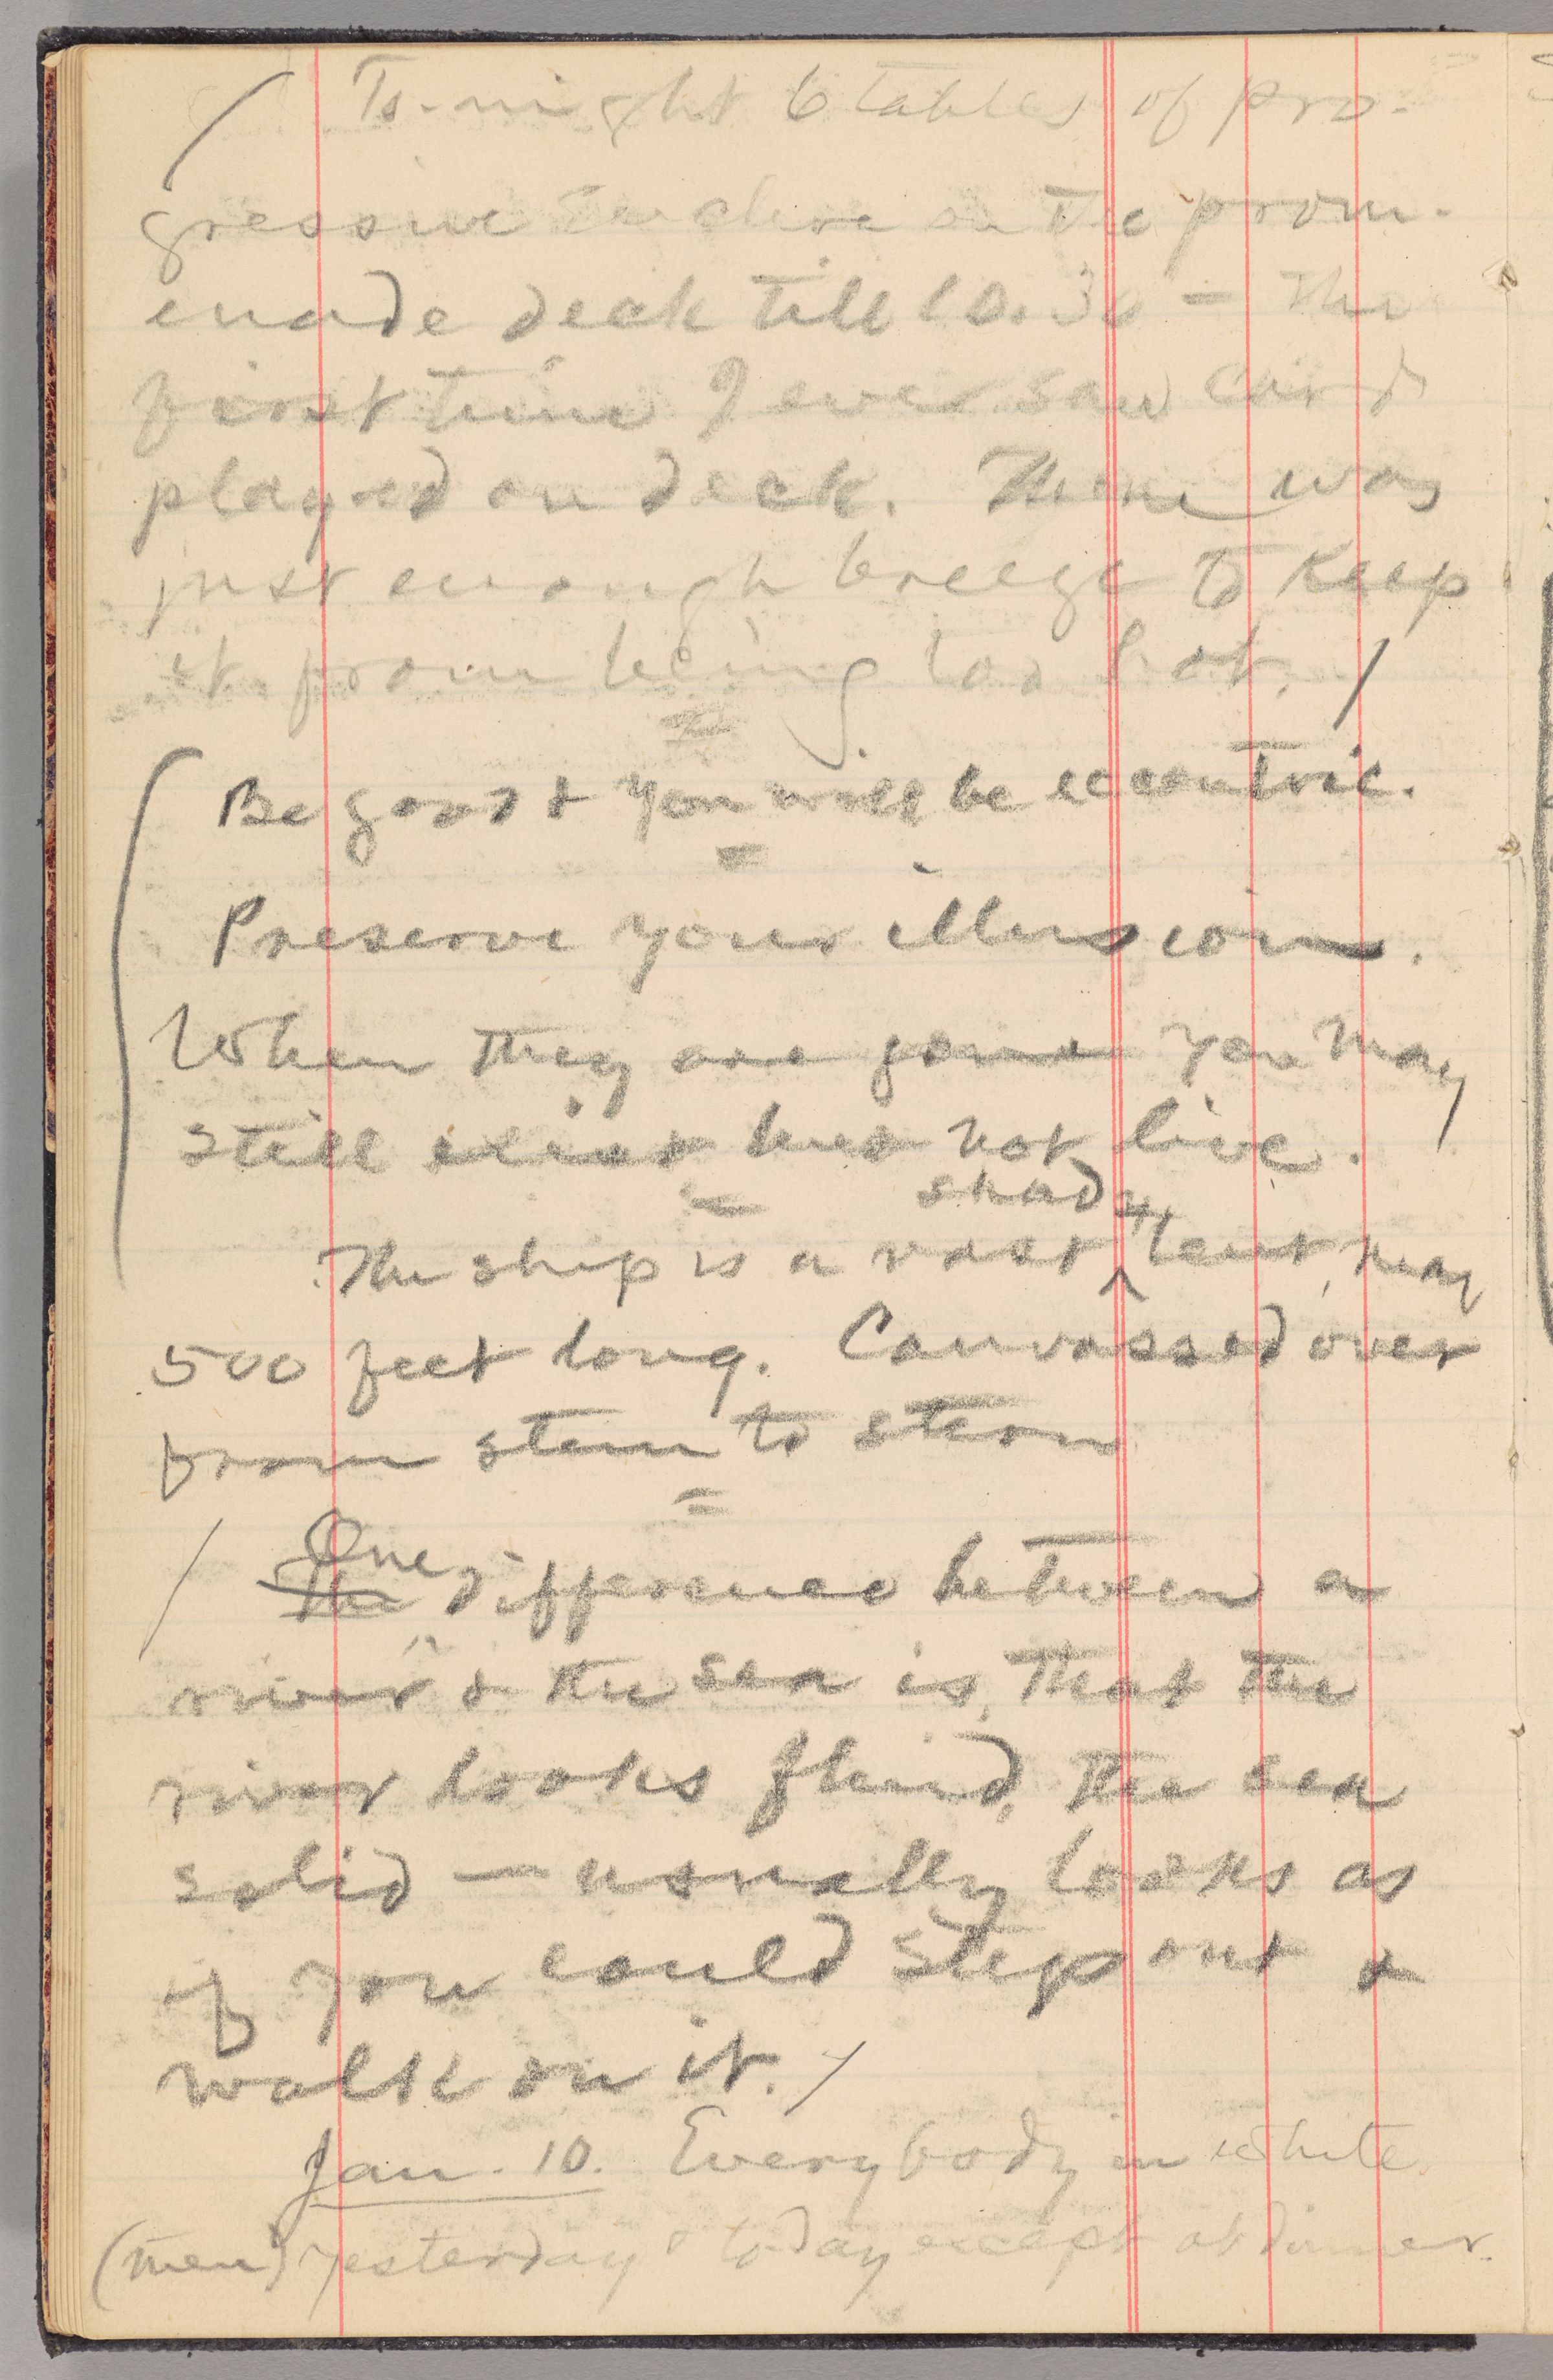 To-night 6 tables of pro-
gressive euchre on the prom-
enade deck till 10.30 — the
first time I ever saw cards
played on deck. There was
just enough breeze to keep
it from being too hot.
=
Be good & you will be eccentric.
=
Preserve your illusions.
When they are gone you may
still exist but not live.
=
shady
The ship is a vast ^ tent, may
500 feet long. Canvassed over
from stem to stern
=
One
The difference between a
river & the sea is, that the
river looks fluid, the sea
solid — usually looks as
if you could step out &
walk on it.
Jan. 10. Everybody in white
(men) yesterday & to-day except at dinner.